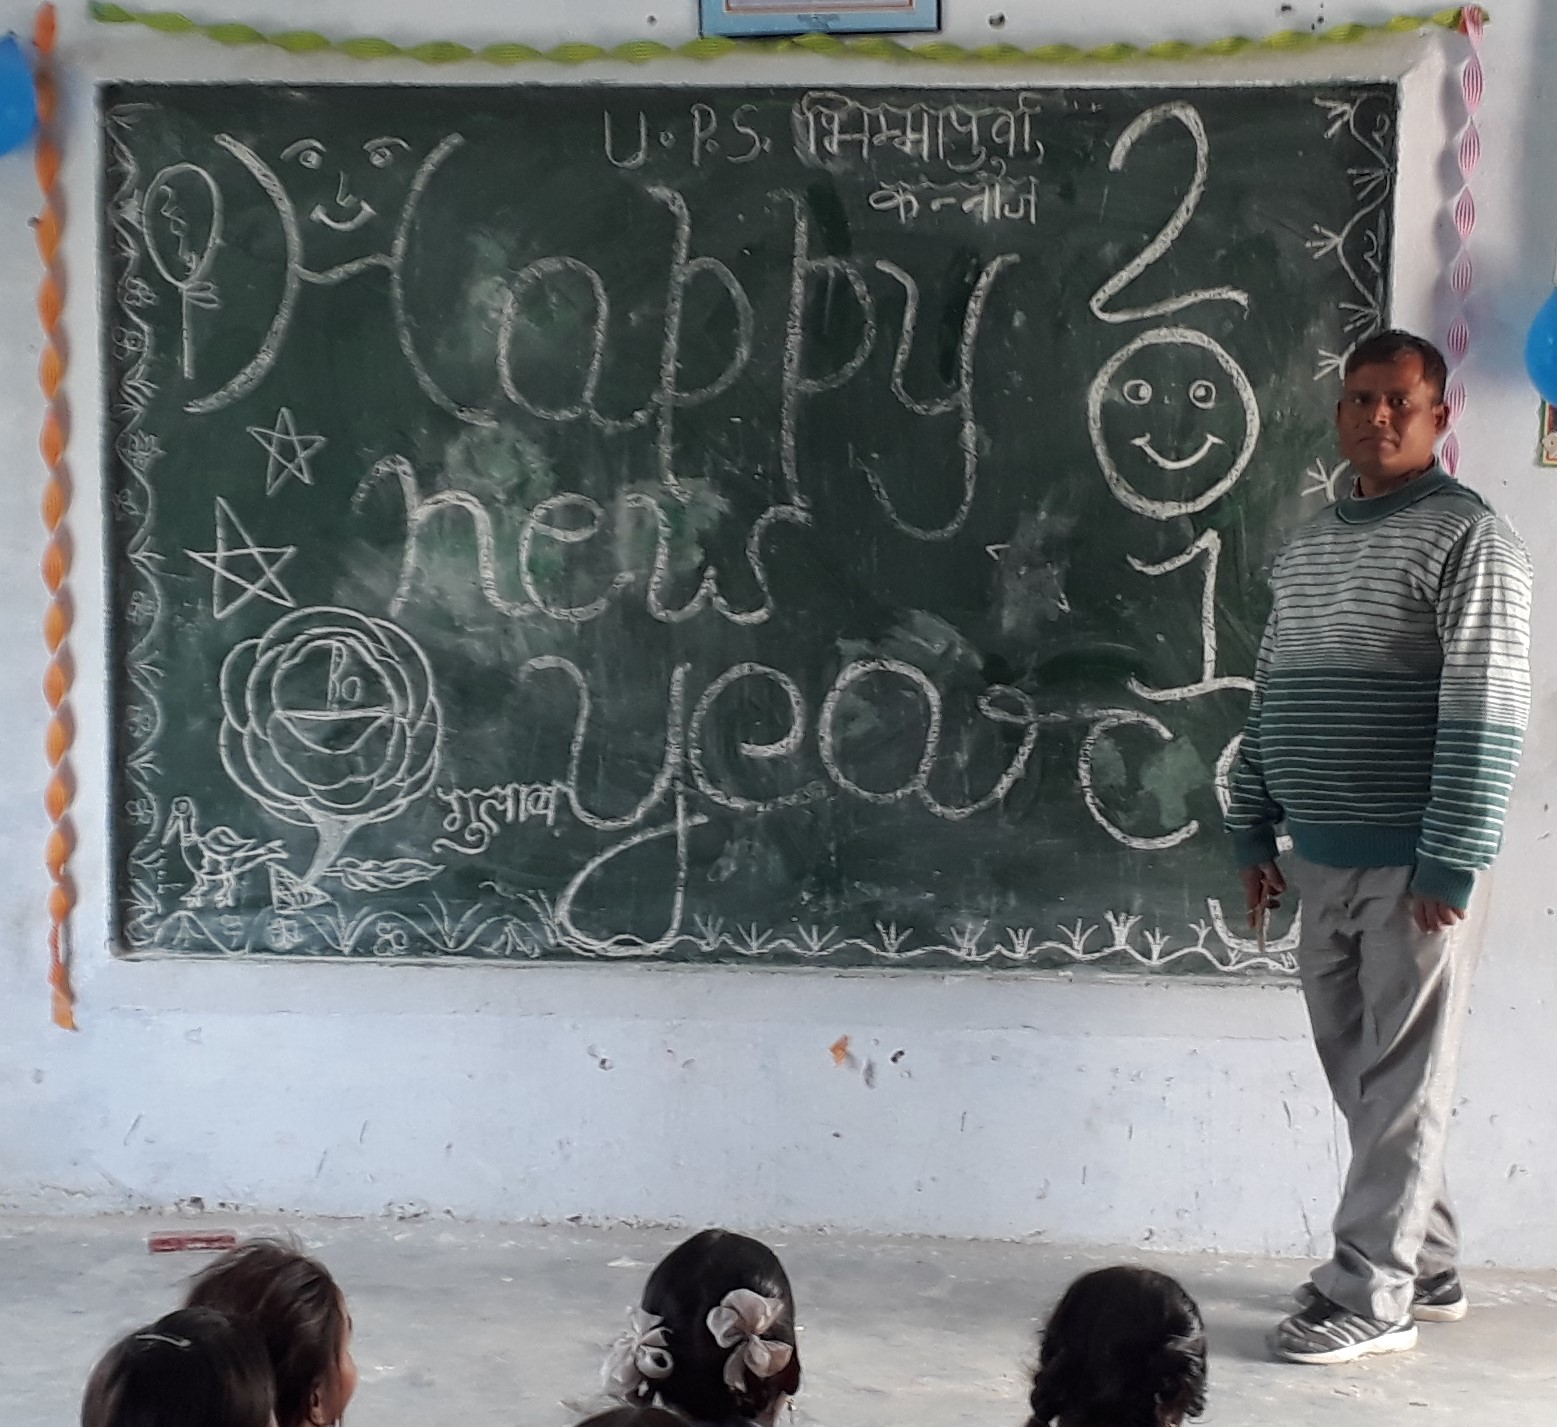 U.P.S. भिम्मापुर्वा,
कन्नौज
Happy
new
year
201
गुलाब